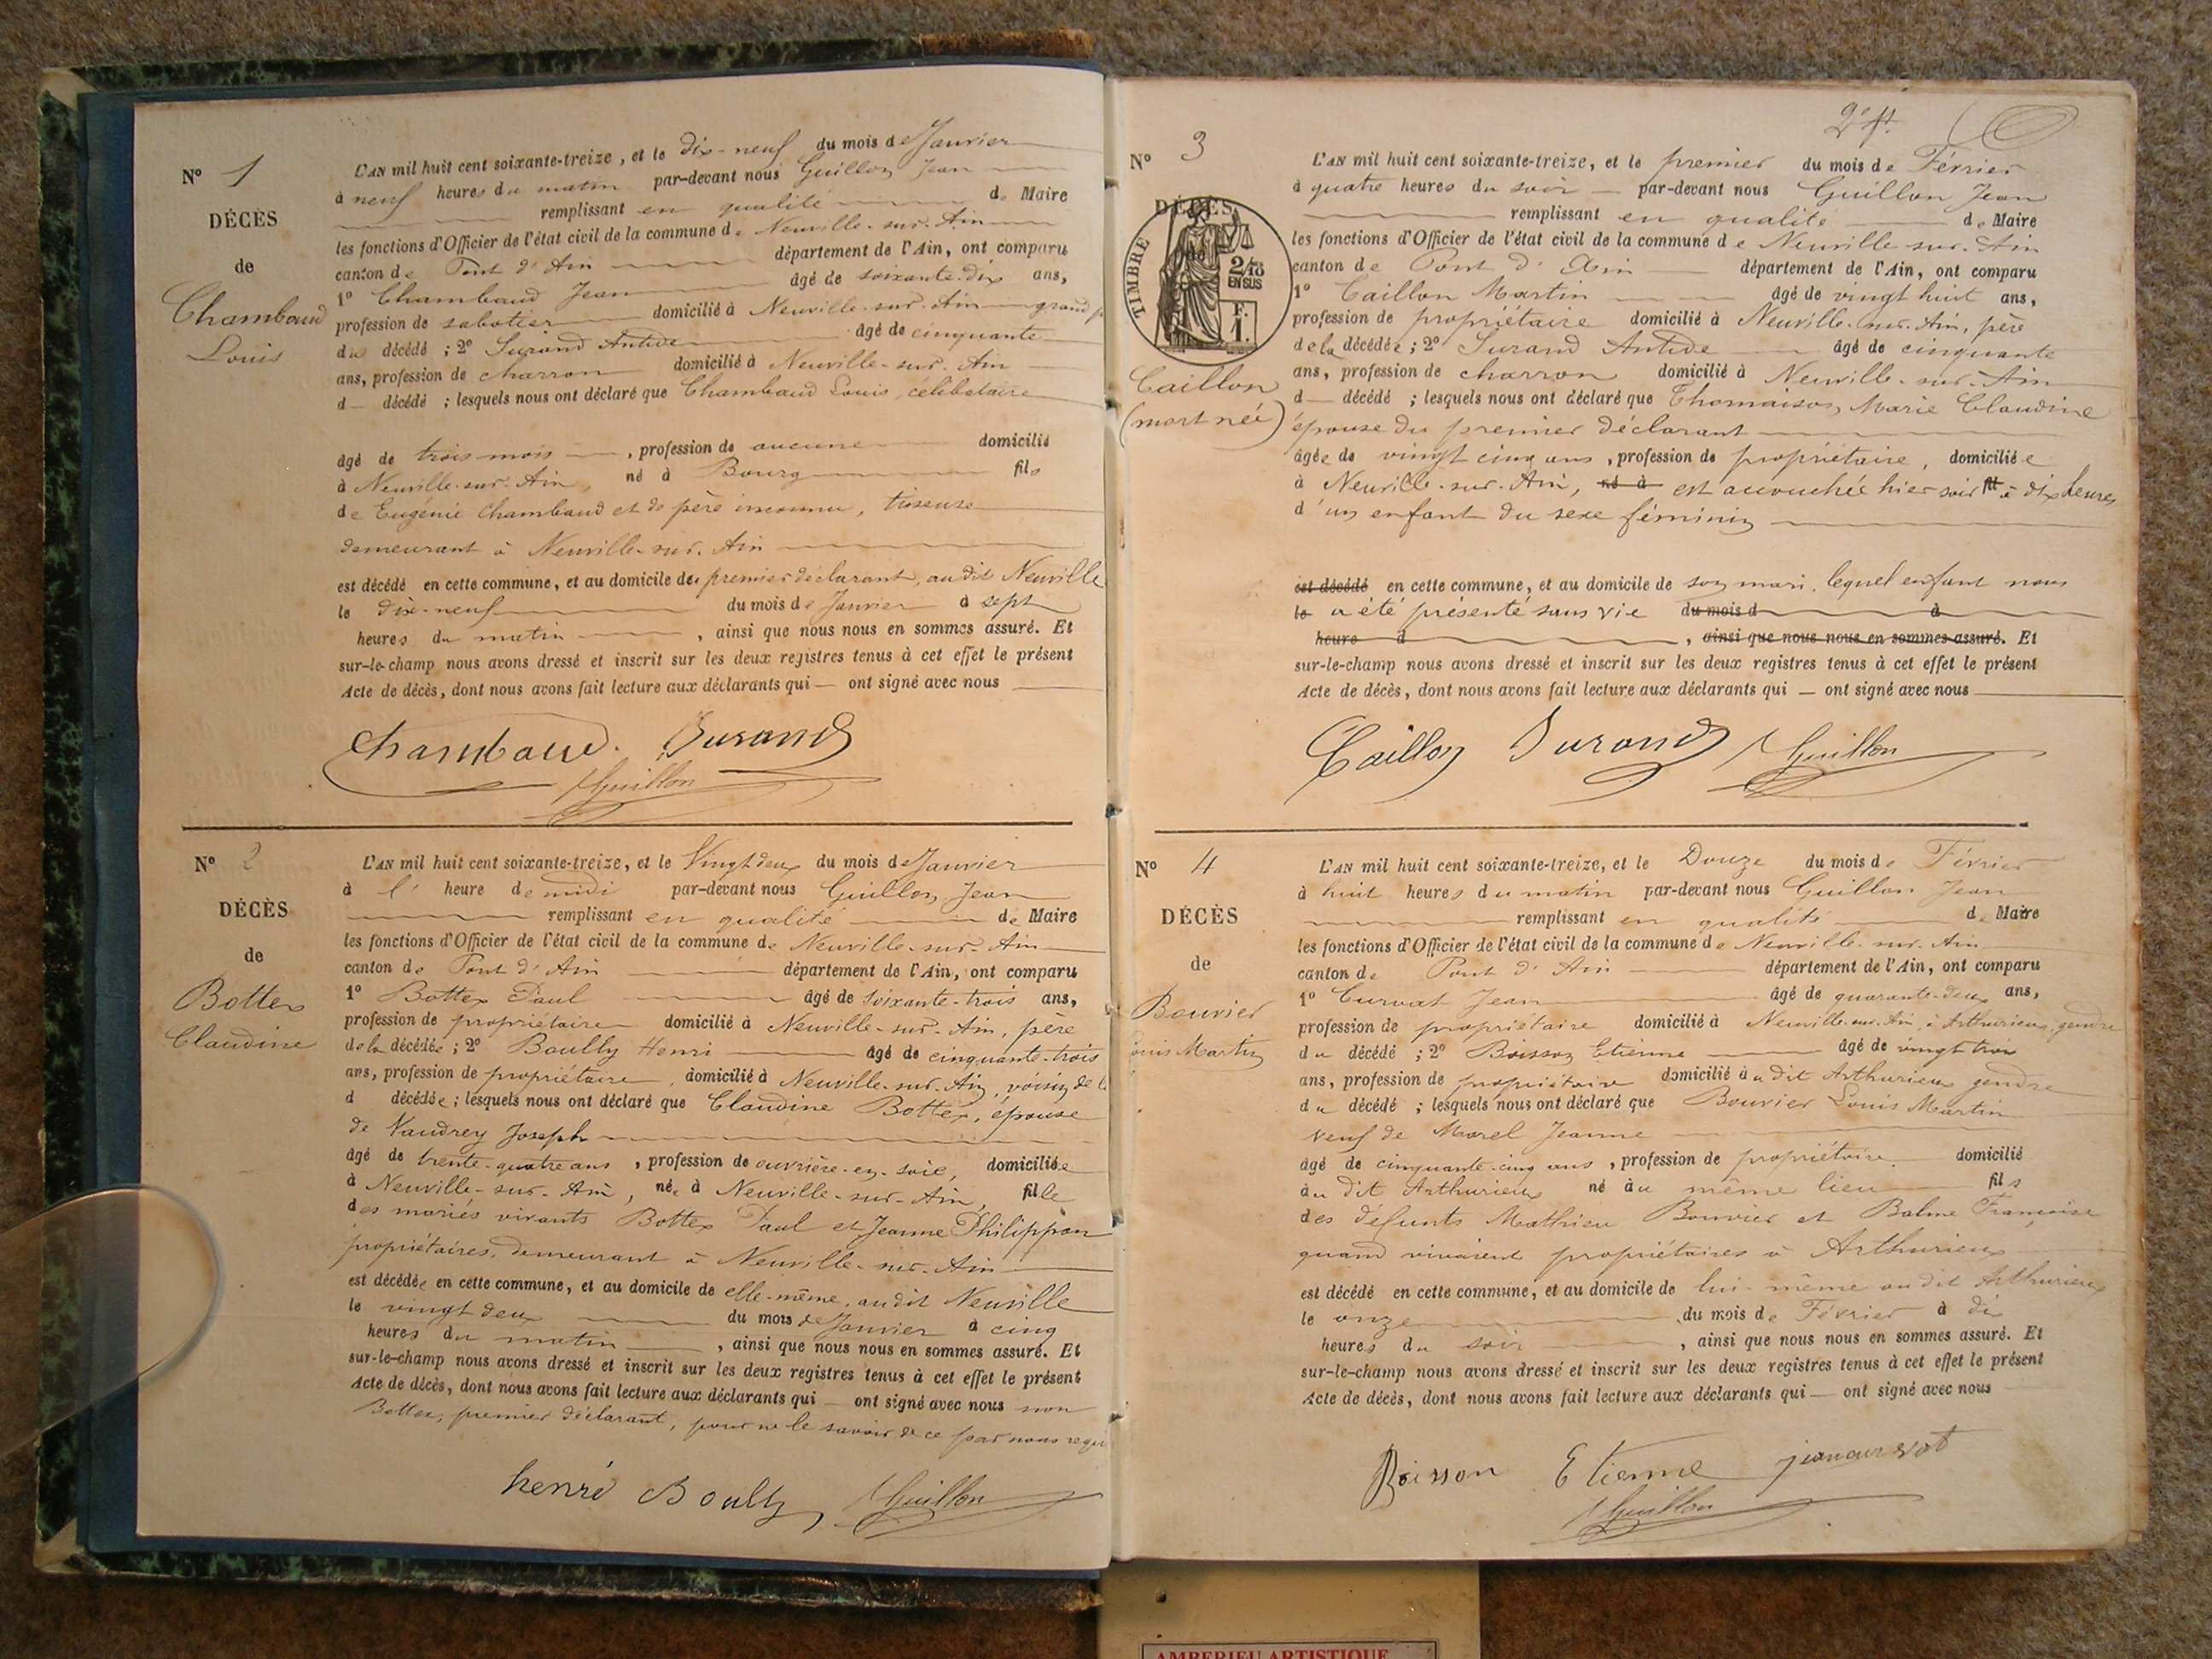 N° 1
DÉCÈS
de
Chambaud
Louis
L'AN mil huit cent soixante-treize, et le dix-neuf du mois de Janvier
à neuf heures du matin par-devant nous Guillon Jean
remplissant en qualité de Maire
les fonctions d'Officier de l'état civil de la commune de Neuville-sur-Ain
canton de Pont d'Ain département de l'Ain, ont comparu
1° Chambaud Jean âgé de soixante-dix ans,
profession de sabotier domicilié à Neuville-sur-Ain grand
du décédé ; 2° Durand Antide âgé de cinquante
ans, profession de charron domicilié à Neuville-sur-Ain
d décédé ; lesquels nous ont déclaré que Chambaud Louis, célibataire
âgé de trois mois, profession de aucune domicilié
à Neuville-sur-Ain, né à Bourg fils
de Eugénie Chambaud et de père inconnu, tisseuse
demeurant à Neuville-sur-Ain
est décédé en cette commune, et au domicile du premier déclarant, audit Neuville
le dix-neuf du mois de Janvier à sept
heures du matin, ainsi que nous nous en sommes assuré. Et
sur-le-champ nous avons dressé et inscrit sur les deux registres tenus à cet effet le présent
Acte de décès, dont nous avons fait lecture aux déclarants qui — ont signé avec nous
Chambaud. Durand
Guillon
N° 2
DÉCÈS
de
Bottex
Claudine
L'AN mil huit cent soixante-treize, et le Vingt deux du mois de Janvier
à l' heure de midi par-devant nous Guillon Jean
remplissant en qualité de Maire
les fonctions d'Officier de l'état civil de la commune de Neuville-sur-Ain
canton de Pont d'Ain département de l'Ain, ont comparu
1° Bottex Paul âgé de soixante-trois ans,
profession de propriétaire domicilié à Neuville-sur-Ain, père
de la décédée ; 2° Boully Henri âgé de cinquante-trois
ans, profession de propriétaire, domicilié à Neuville-sur-Ain, voisin de l
d décédée ; lesquels nous ont déclaré que Claudine Bottex, épouse
de Vaudrey Joseph
âgé de trente-quatre ans, profession de ouvrière-en-soie, domiciliée
à Neuville-sur-Ain, née à Neuville-sur-Ain, fille
des mariés vivants Bottex Paul et Jeanne Philippon
propriétaires, demeurant à Neuville-sur-Ain
est décédée en cette commune, et au domicile de elle-même, audit Neuville
le vingt deux du mois de Janvier à cinq
heures du matin, ainsi que nous nous en sommes assuré. Et
sur-le-champ nous avons dressé et inscrit sur les deux registres tenus à cet effet le présent
Acte de décès, dont nous avons fait lecture aux déclarants qui — ont signé avec nous non
Bottex, premier déclarant, pour ne le savoir de ce par nous requi
henri Boully Guillon
N° 3
DÉCÈS
TIMBRE
2/10
EN SUS
F.
1.
Caillon
(mort née)
L'AN mil huit cent soixante-treize, et le premier du mois de Février
à quatre heures du soir par-devant nous Guillon Jean
remplissant en qualité de Maire
les fonctions d'Officier de l'état civil de la commune de Neuville-sur-Ain
canton de Pont d'Ain département de l'Ain, ont comparu
1° Caillon Martin âgé de vingt huit ans,
profession de propriétaire domicilié à Neuville-sur-Ain, père
de la décédée ; 2° Durand Antide âgé de cinquante
ans, profession de charron domicilié à Neuville-sur-Ain
d décédé ; lesquels nous ont déclaré que Thomaison Marie Claudine
épouse du premier déclarant
âgée de vingt cinq ans, profession de propriétaire, domiciliée
à Neuville-sur-Ain, né à est accouchée hier soir à dix heures
d'un enfant du sexe féminin
est décédé en cette commune, et au domicile de son mari, lequel enfant nous
le a été présenté sans vie du mois d à
heure d, ainsi que nous nous en sommes assuré. Et
sur-le-champ nous avons dressé et inscrit sur les deux registres tenus à cet effet le présent
Acte de décès, dont nous avons fait lecture aux déclarants qui — ont signé avec nous
Caillon Durand Guillon
N° 4
DÉCÈS
de
Bouvier
Louis Martin
L'AN mil huit cent soixante-treize, et le Douze du mois de Février
à huit heures du matin par-devant nous Guillon Jean
remplissant en qualité de Maire
les fonctions d'Officier de l'état civil de la commune de Neuville-sur-Ain
canton de Pont d'Ain département de l'Ain, ont comparu
1° Curvat Jean âgé de quarante-deux ans,
profession de propriétaire domicilié à Neuville-sur-Ain, à Arthurieux, gendre
du décédé ; 2° Boisson Etienne âgé de vingt trois
ans, profession de propriétaire domicilié au dit Arthurieux gendre
du décédé ; lesquels nous ont déclaré que Bouvier Louis Martin
veuf de Morel Jeanne
âgé de cinquante-cinq ans, profession de propriétaire, domicilié
au dit Arthurieux né au même lieu fils
des défunts Mathieu Bouvier et Balme Françoise
quand vivaient propriétaires à Arthurieux
est décédé en cette commune, et au domicile de lui-même au dit Arthurieux
le onze du mois de Février à dix
heures du soir, ainsi que nous nous en sommes assuré. Et
sur-le-champ nous avons dressé et inscrit sur les deux registres tenus à cet effet le présent
Acte de décès, dont nous avons fait lecture aux déclarants qui — ont signé avec nous
Boisson Etienne jean curvat
Guillon
AMBERIEU ARTISTIQUE